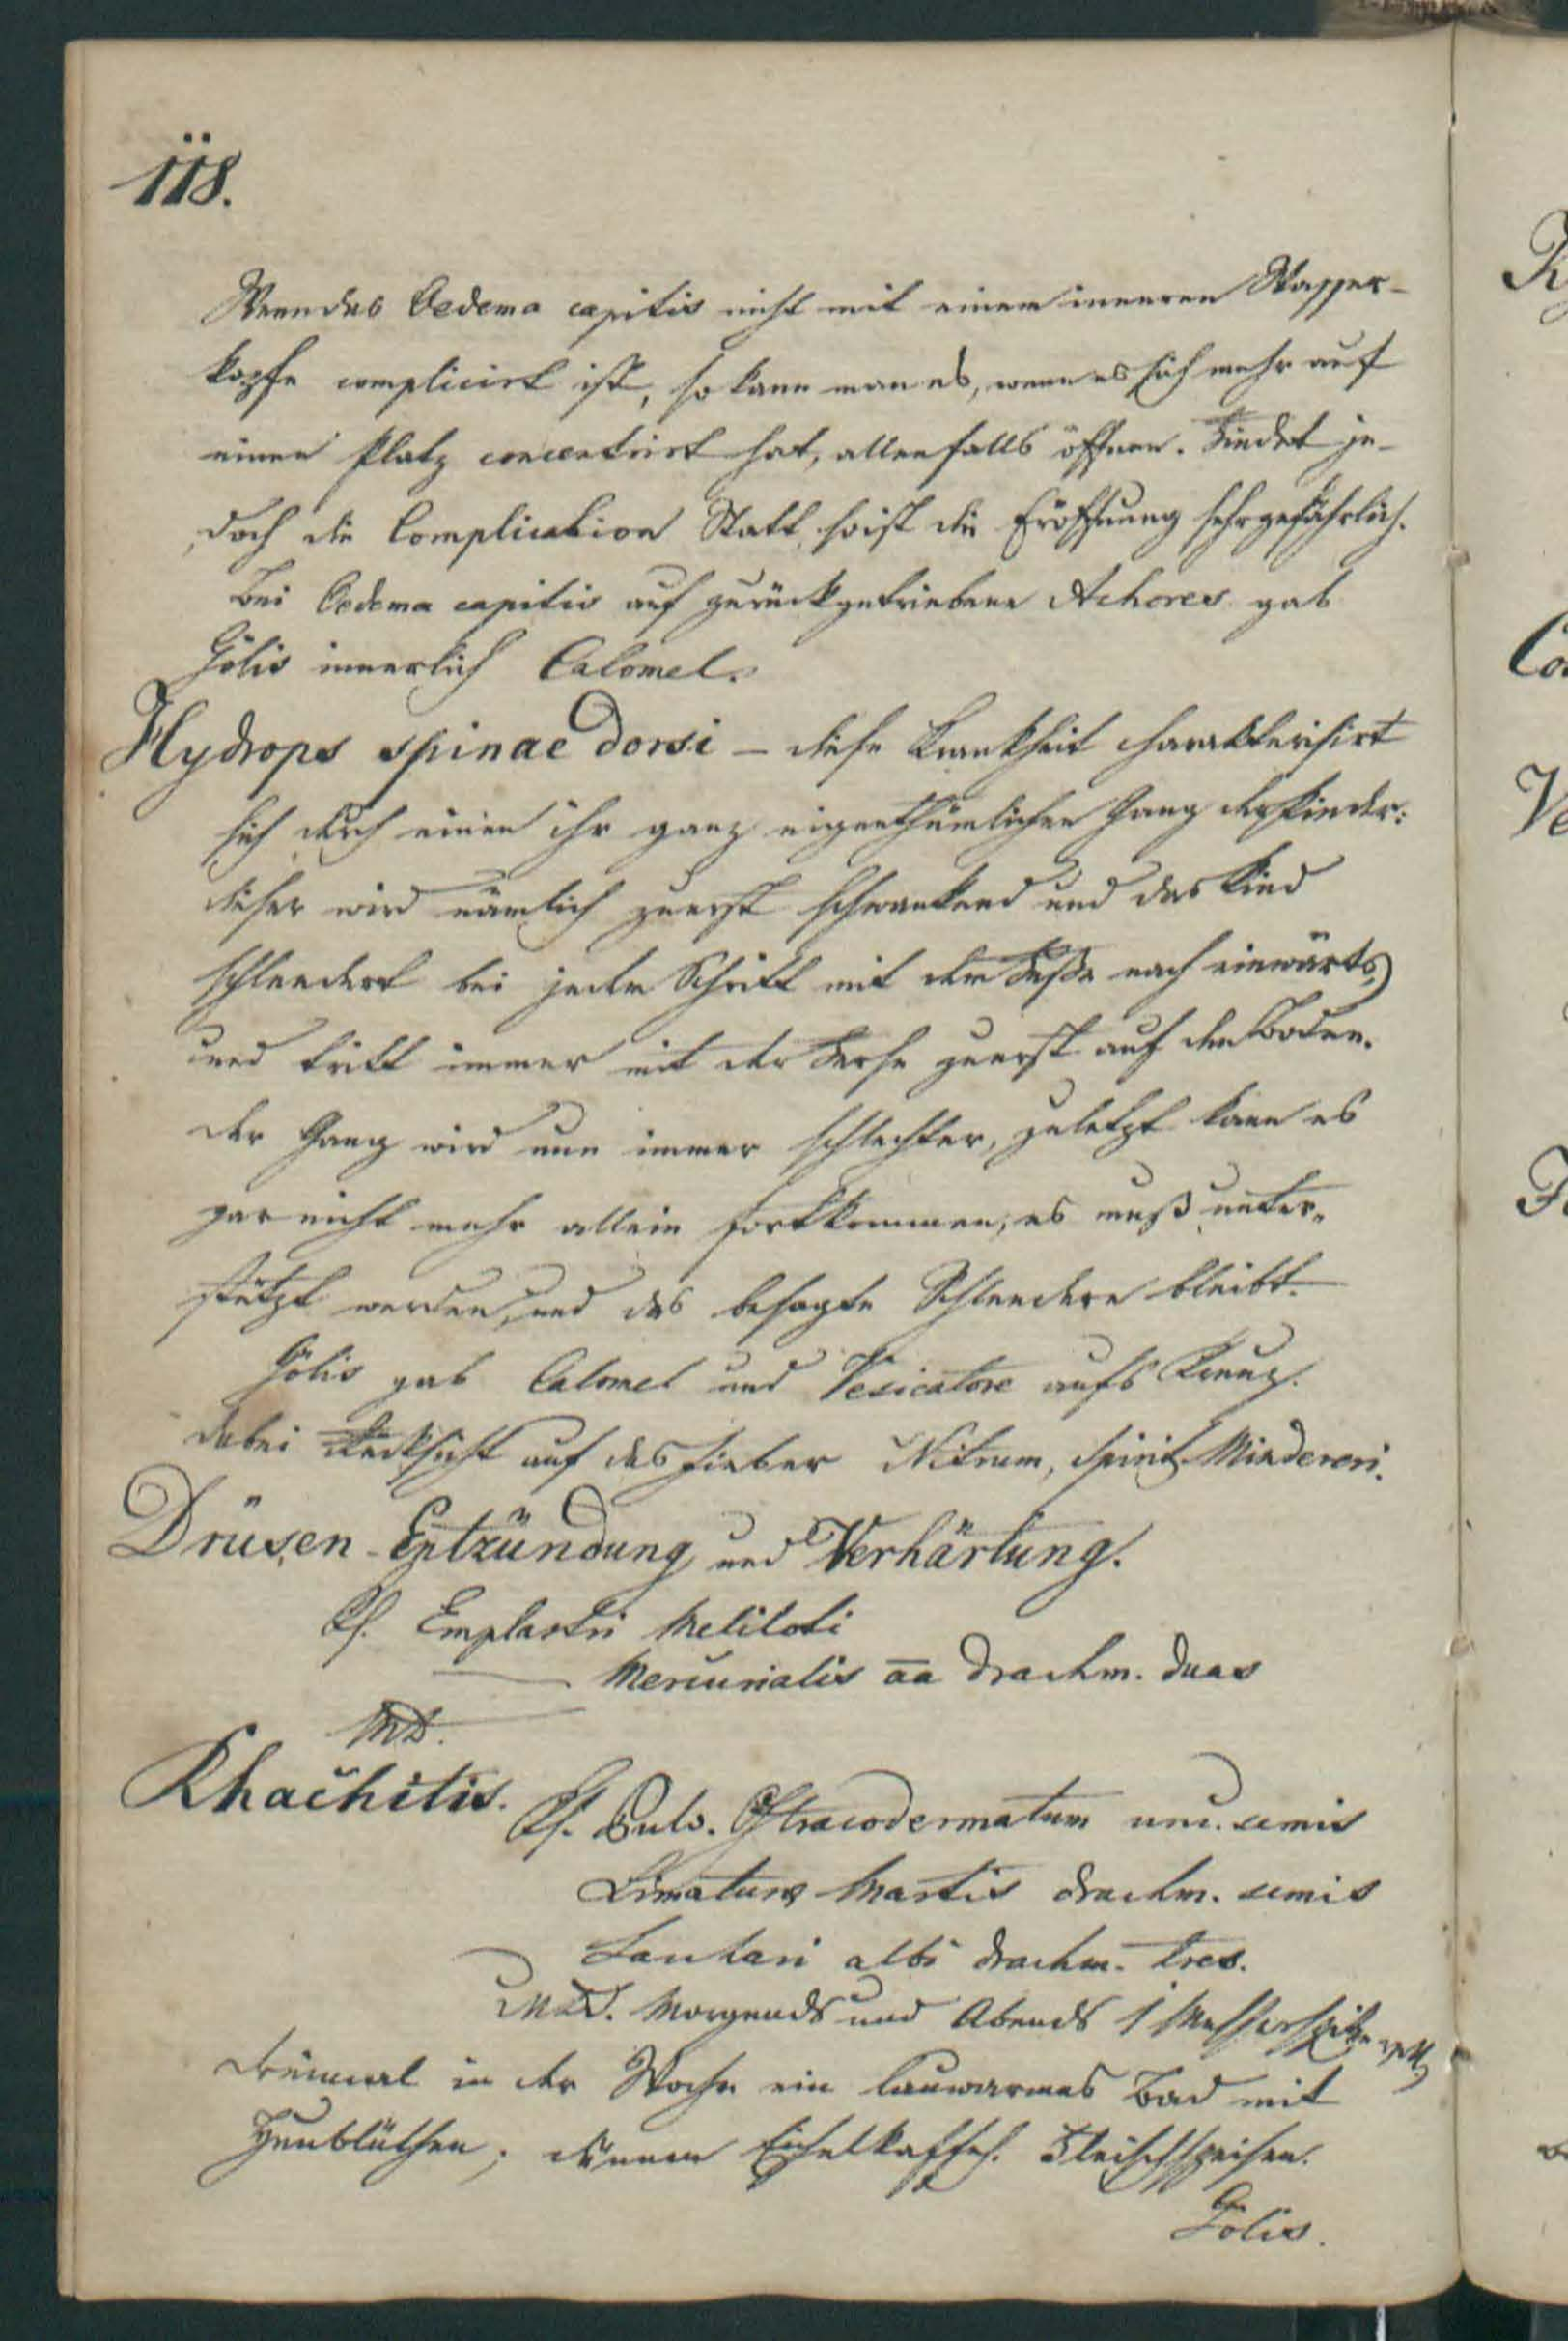 118.
Wenn das Oedema capitis nicht mit einem inneren Wasser-
kopfe complicirt ist, so kann man es, wenn es sich mehr auf
einen Platz concentrirt hat, allenfalls öffnen. Findet je-
doch die Complication Statt, so ist die Eröffnung sehr gefährlich.
Bei Oedema capitis auf zurückgetriebene Achores gab
Gölis innerlich Calomel.
Hydrops spinae Dorsi – diese Krankheit charakterisirt
sich durch einen ihr ganz eigenthümlichen Gang der Kinder:
dieser wird nämlich zuerst schwankend und das Kind
schleudert bei jedem Schritt mit dem Fuße nach einwärts,
und tritt immer mit der Ferse zuerst auf den Boden.
Der Gang wird nun immer schlechter, zuletzt kann es
gar nicht mehr allein fortkommen, es muß unter-
stützt werden, und das besagte Schleudern bleibt.
Gölis gab Calomel und Vesicatore aufs Kreuz.
dabei Rücksicht auf das Fieber Nitrum, Spirit. Mindereri.
Drüsen-Entzündung und Verhärtung.
Rf. Emplastri Meliloti
— Mercurialis aa drachm. duas
MD.
Rhachitis. Rf. Pulv. Ostracodermatum unc. semis
Limatura Martis drachm. semis
Sachari albi drachm. tres.
MDS. Morgends und Abends 1 Messerspitze voll,
dreimal in der Woche ein lauwarmes Bad mit
Heublüthen; dünnen Eichelkaffeh. Fleischspeisen.
Gölis.
R
Co
Ve